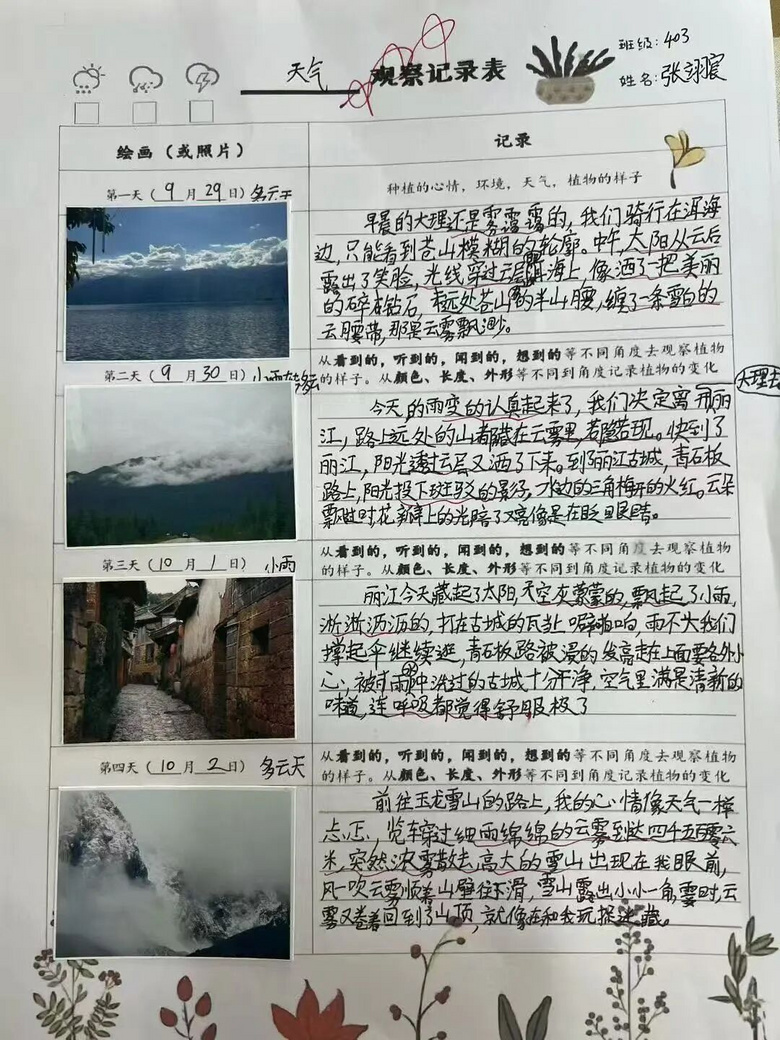 班级：403
天气 观察记录表
姓名：张翊宸
绘画（或照片）
记录
种植的心情，环境，天气，植物的样子
第一天（9月29日）多云天
早晨的大理还是雾蒙蒙的，我们骑行在洱海
边，只能看到苍山模糊的轮廓。中午，太阳从云后
露出了笑脸，光线穿过云层 洱海上，像洒了一把美丽
的碎钻石，看远处苍山的半山腰，缠了一条雪白的
云腰带，那是云雾飘渺。
从看到的，听到的，闻到的，想到的等不同角度去观察植物
的样子。从颜色、长度、外形等不同到角度记录植物的变化
第二天（9月30日）小雨转多云
大理去
今天的雨变的认真起来了，我们决定离开丽
江，路上远处的山都藏在云雾里，若隐若现。快到了
丽江，阳光透过云层又洒了下来。到了丽江古城，青石板
路上，阳光投下斑驳的影子，水边的三角梅开的火红。云朵
飘过时花瓣上的光暗了又亮像是在眨眼睛。
从看到的，听到的，闻到的，想到的等不同角度去观察植物
的样子。从颜色、长度、外形等不同到角度记录植物的变化
第三天（10月1日）小雨
丽江今天藏起了太阳，天空灰蒙蒙的，飘起了小雨，
淅淅沥沥的，打在古城的瓦上 啪啪响，雨不大我们
撑起伞继续逛，青石板路被浸的发亮走在上面要格外小
心，被雨冲洗过的古城十分干净，空气里满是清新的
味道，连呼吸都觉得舒服极了
从看到的，听到的，闻到的，想到的等不同角度去观察植物
的样子。从颜色、长度、外形等不同到角度记录植物的变化
第四天（10月2日）多云天
前往玉龙雪山的路上，我的心情像天气一样
忐忑，览车穿过细雨绵绵的云雾到达四千五百零六
米，突然浓雾散去，高大的雪山出现在我眼前，
风一吹云雾顺着山壁往下滑，雪山露出小小一角，霎时，云
雾又卷着回到了山顶，就像在和我玩捉迷藏。